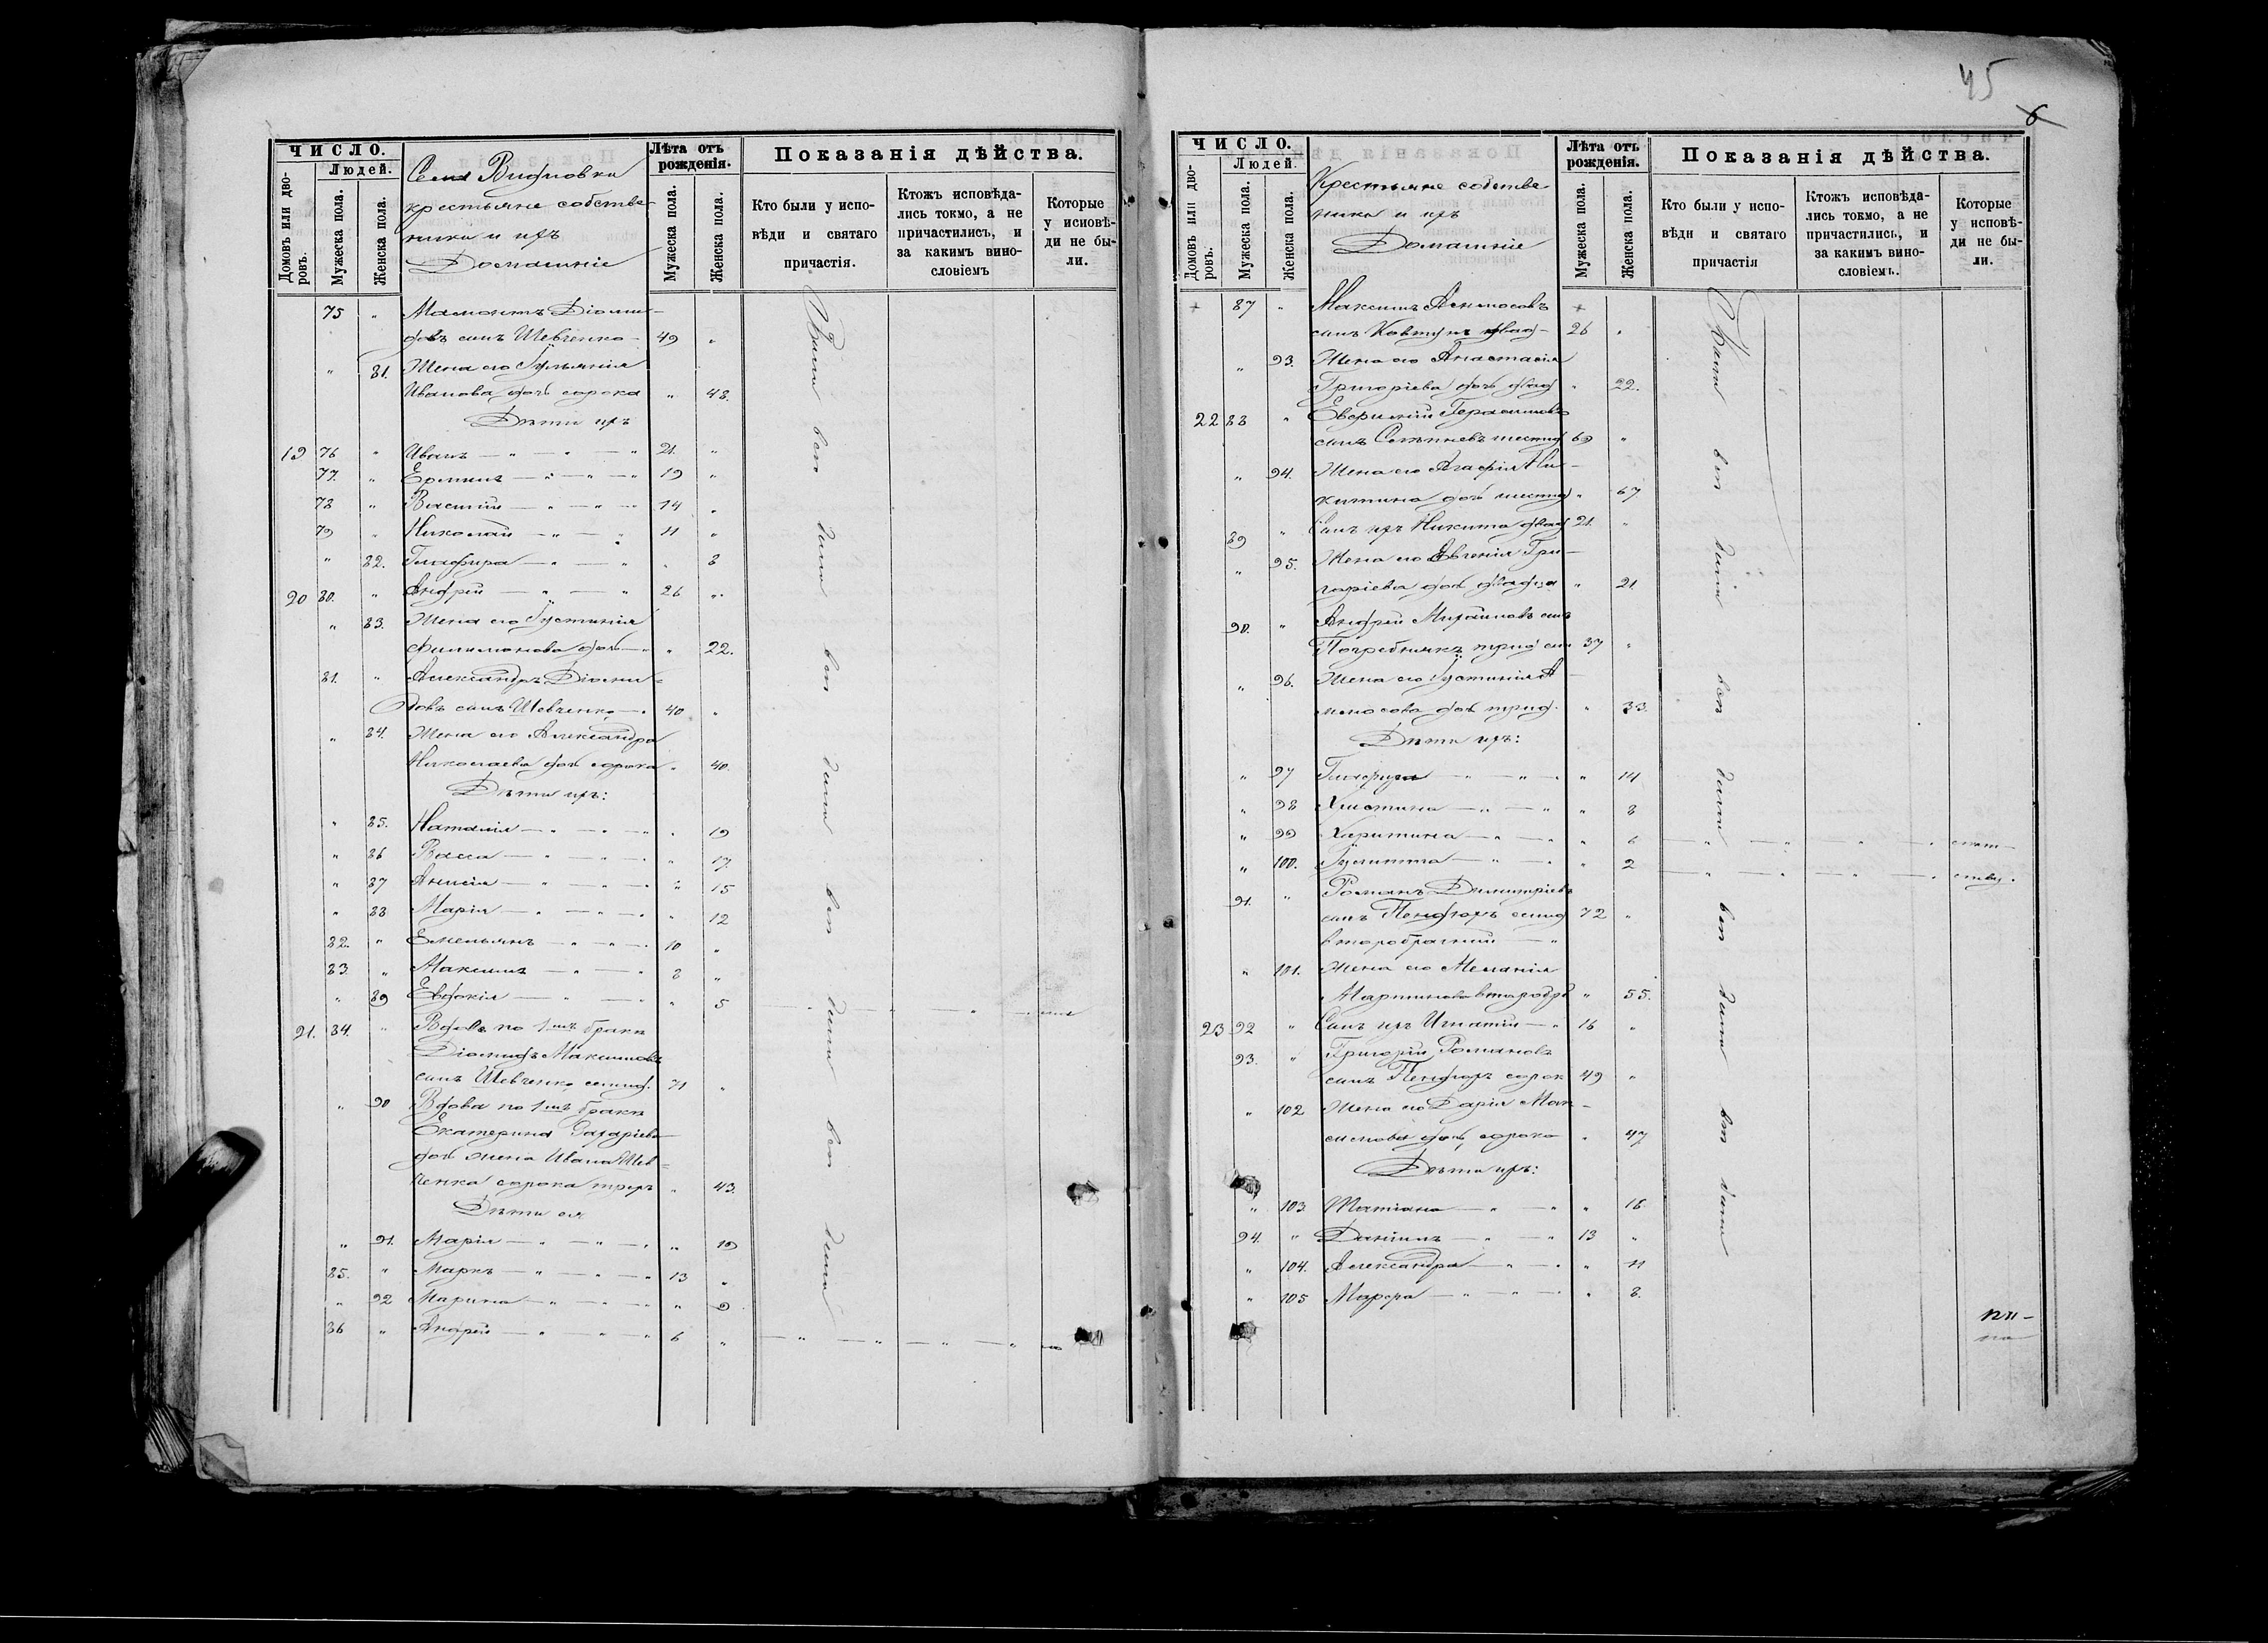 ЧИСЛО.
Людей.
Домовъ или дво-
ровъ.
Мужеска пола.
Женска пола.
Села
крестьяне собстве-
ники и ихъ
Домашніе
Лѣта отъ
рожденія.
Мужеска пола.
Женска пола.
Показанія дѣйства.
Кто были у испо-
вѣди и святаго
причастія.
Ктожъ исповѣда-
лись токмо, а не
причастились, и
за какимъ вино-
словіемъ
Которые
у исповѣ-
ди не бы-
ли.
75 " Мамонтъ Діоми-
довъ сынъ Шевченко 49 "
" 81. Жена его
Иванова дочь сорока " 48.
Дѣти ихъ
19 76 " Иванъ 21. "
77. " 19 "
78 " Василій 14 "
79 " Николай 11 "
" 82. Глафира " 8
20 80. " Андрей 26 "
" 83. Жена его Іустинія
Филимонова дочь " 22.
81. " Александръ Діоми-
довъ сынъ Шевченко 40 "
" 84. Жена его Александра
Николаева дочь сорока " 40.
Дѣти ихъ:
" 85. Наталія " 19
" 86 Васса " 17.
" 87 Анисія " 15
" 88 Марія " 12
82. " Емельянъ 10 "
83. " Максимъ 8 "
" 89 Евдокія " 5
21. 84. " Вдовъ по 1мъ бракѣ
Діомидъ Максимовъ
сынъ Шевченко семид. 71 "
" 90 Вдова по 1мъ бракѣ
Екатерина Захаріева
дочь жена Ивана Шев-
ченка сорока трехъ " 43.
Дѣти ея
" 91. Марія " 19
85. " Маркъ 13 "
" 92 Марина " 9
86 " Андрей 6 "
45
6
ЧИСЛО.
Людей.
Домовъ или дво-
ровъ.
Мужеска пола.
Женска пола.
Крестьяне собстве-
ники и ихъ
Домашніе
Лѣта отъ
рожденія.
Мужеска пола.
Женска пола.
Показанія дѣйства.
Кто были у испо-
вѣди и святаго
причастія
Ктожъ исповѣда-
лись токмо, а не
причастились, и
за какимъ вино-
словіемъ.
Которые
у исповѣ-
ди не бы-
ли.
+ 87 " Максимъ +
сынъ Ковтунъ двад- 26 "
" 93. Жена его Анастасія
Григоріева дочь двад " 22.
22 88 " Герасимовъ
сынъ шестид 69 "
" 94. Жена его Агафія Ни-
китина дочь шестид " 67
89 " Сынъ ихъ Никита двад 21. "
" 95. Жена его Евгенія Гри-
горіева дочь двадца " 21.
90. " Андрей Михайловъ сынъ
Погребнякъ трид сем 37 "
" 96. Жена его Іустинія А-
мосова дочь трид. " 33.
Дѣти ихъ:
" 97 Глафира " 14
" 98 Христина " 8
" 99 Харитина " 6
" 100. Іулитта " 2
91. " Романъ Димитріевъ
сынъ семид 72 "
второбрачный
" 101. Жена его Меланія
Мартинова второбр " 55.
23 92 " Сынъ ихъ Игнатій 16 "
93. " Григорій Романовъ
сынъ сорок 49 "
" 102 Жена его Дарія Мак-
симова дочь сорока " 47
Дѣти ихъ:
" 103. Татіана " 16
94. " Даніилъ 13 "
" 104. Александра " 11
" 105 Марфа " 8.